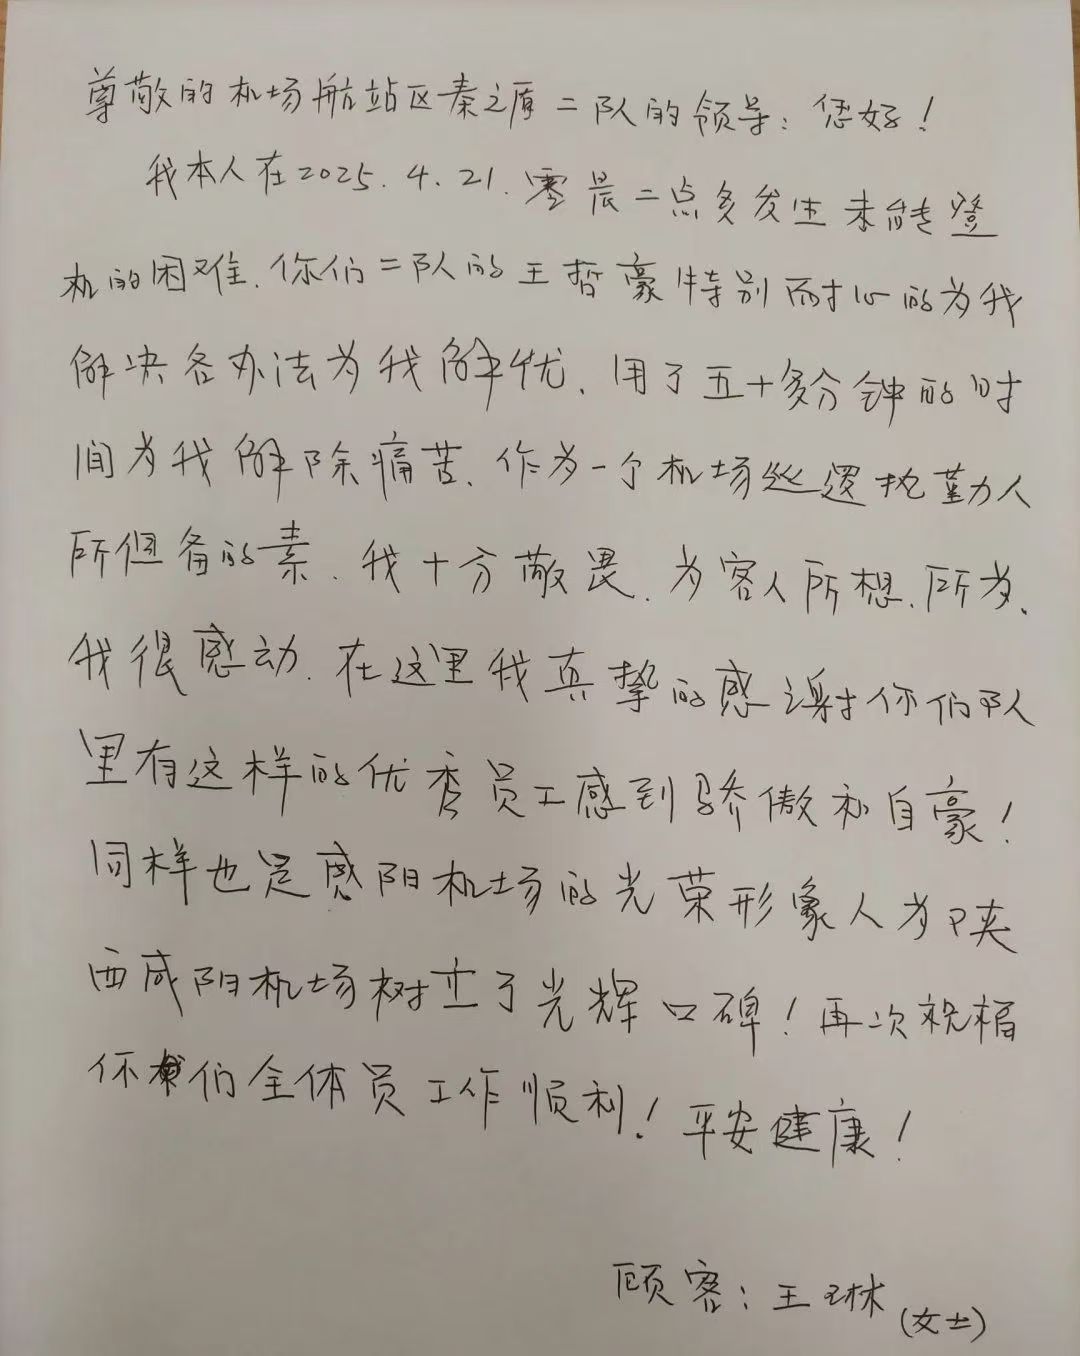 尊敬的机场航站区秦之盾二队的领导：您好！
我本人在2025.4.21.零晨二点多发生未能登
机的困难.你们二队的王哲豪特别耐心的为我
解决各办法为我解忧.用了五十多分钟的时
间为我解除痛苦.作为一个机场巡逻执勤人
所俱备的素.我十分敬畏.为客人所想.所为.
我很感动.在这里我真挚的感谢你们队
里有这样的优秀员工感到骄傲和自豪！
同样也是咸阳机场的光荣形象人为陕
西咸阳机场树立了光辉口碑！再次祝福
你们全体员工作顺利！平安健康！
顾客：王琳(女士)